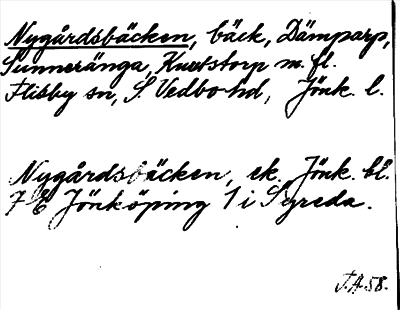 Nygårdsbäcken, bäck, Dämparp,
Sunneränga, Knutstorp m. fl.
Flisby sn, S. Vedbo hd, Jönk. l.
Nygårdsbäcken, ek. Jönk. bl.
7 E Jönköping 1 i Syreda.
J.A. 58.